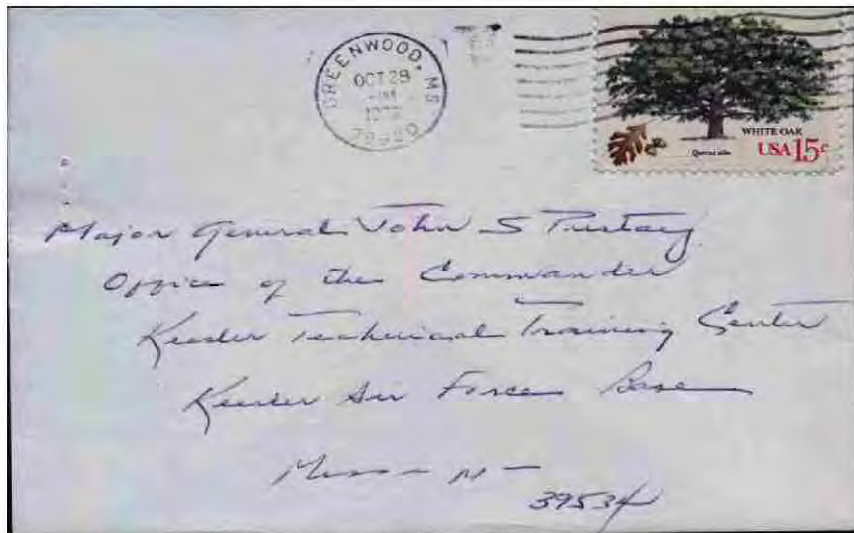 GREENWOOD, MS
OCT 28
PM
WHITE OAK
Quercus alba
USA 15c
Major General John S Pustay
Office of the Commander
Keesler Technical Training Center
Keesler Air Force Base
Miss
39534